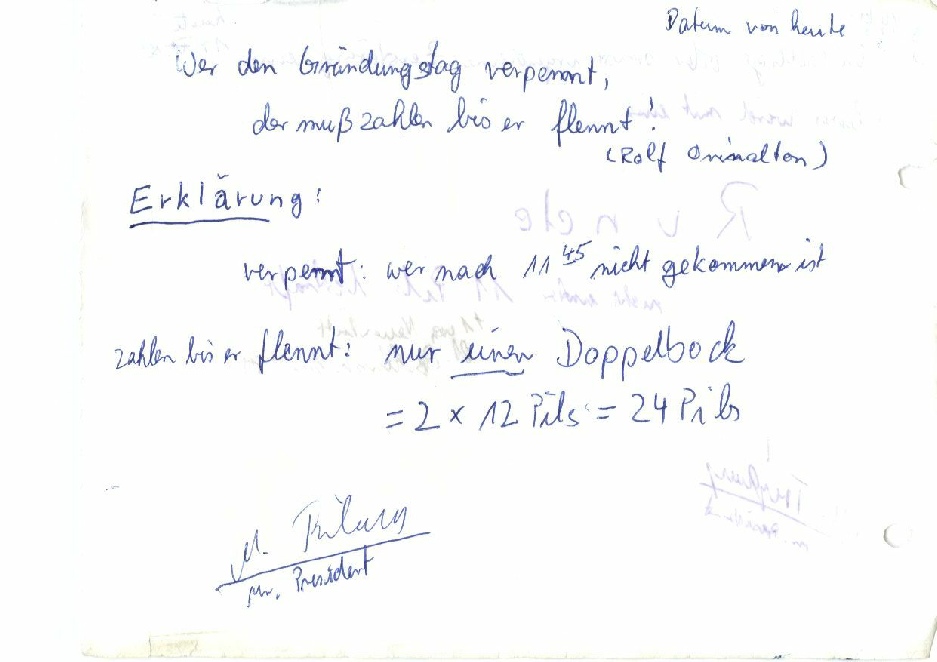 Datum von heute
Wer den Gründungstag verpennt,
der muß zahlen bis er flennt!
(Rolf
Erklärung:
verpennt: wer nach 11 45 nicht gekommen ist
zahlen bis er flennt: nur einen Doppelbock
= 2 x 12 Pils = 24 Pils
M.
Mr. President
Runde